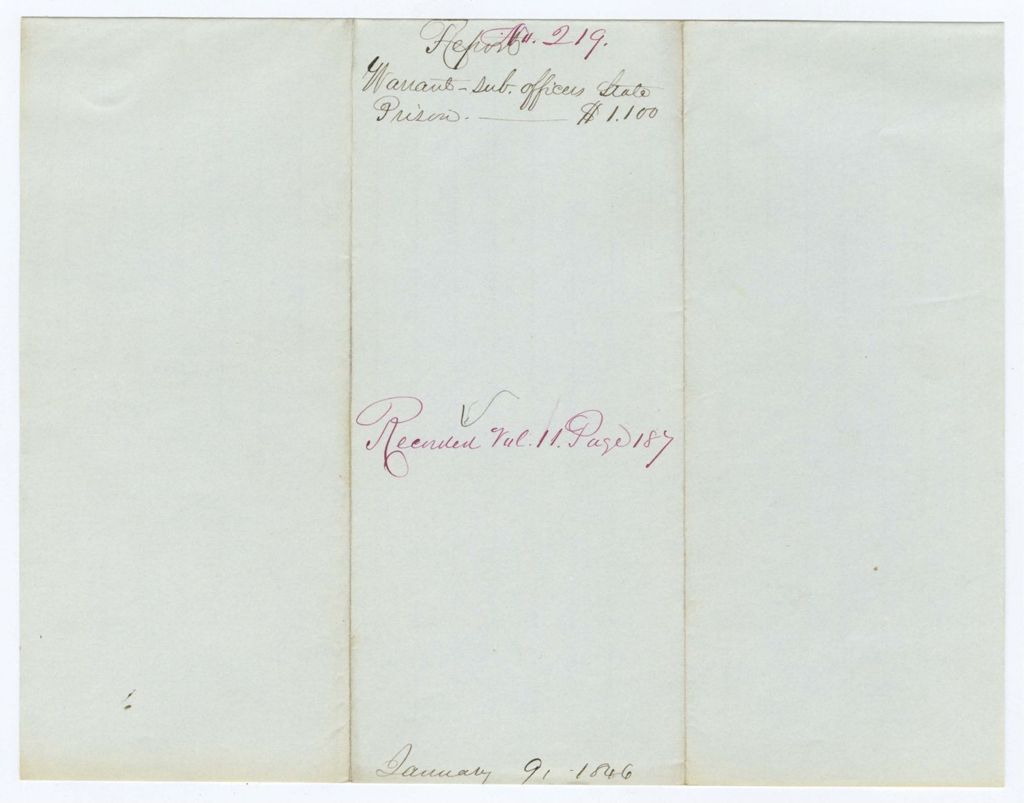 Report No. 219.
Warrant - sub. officers State
Prison. $1.100
Recorded Vol. 11. Page 187
January 9, 1846